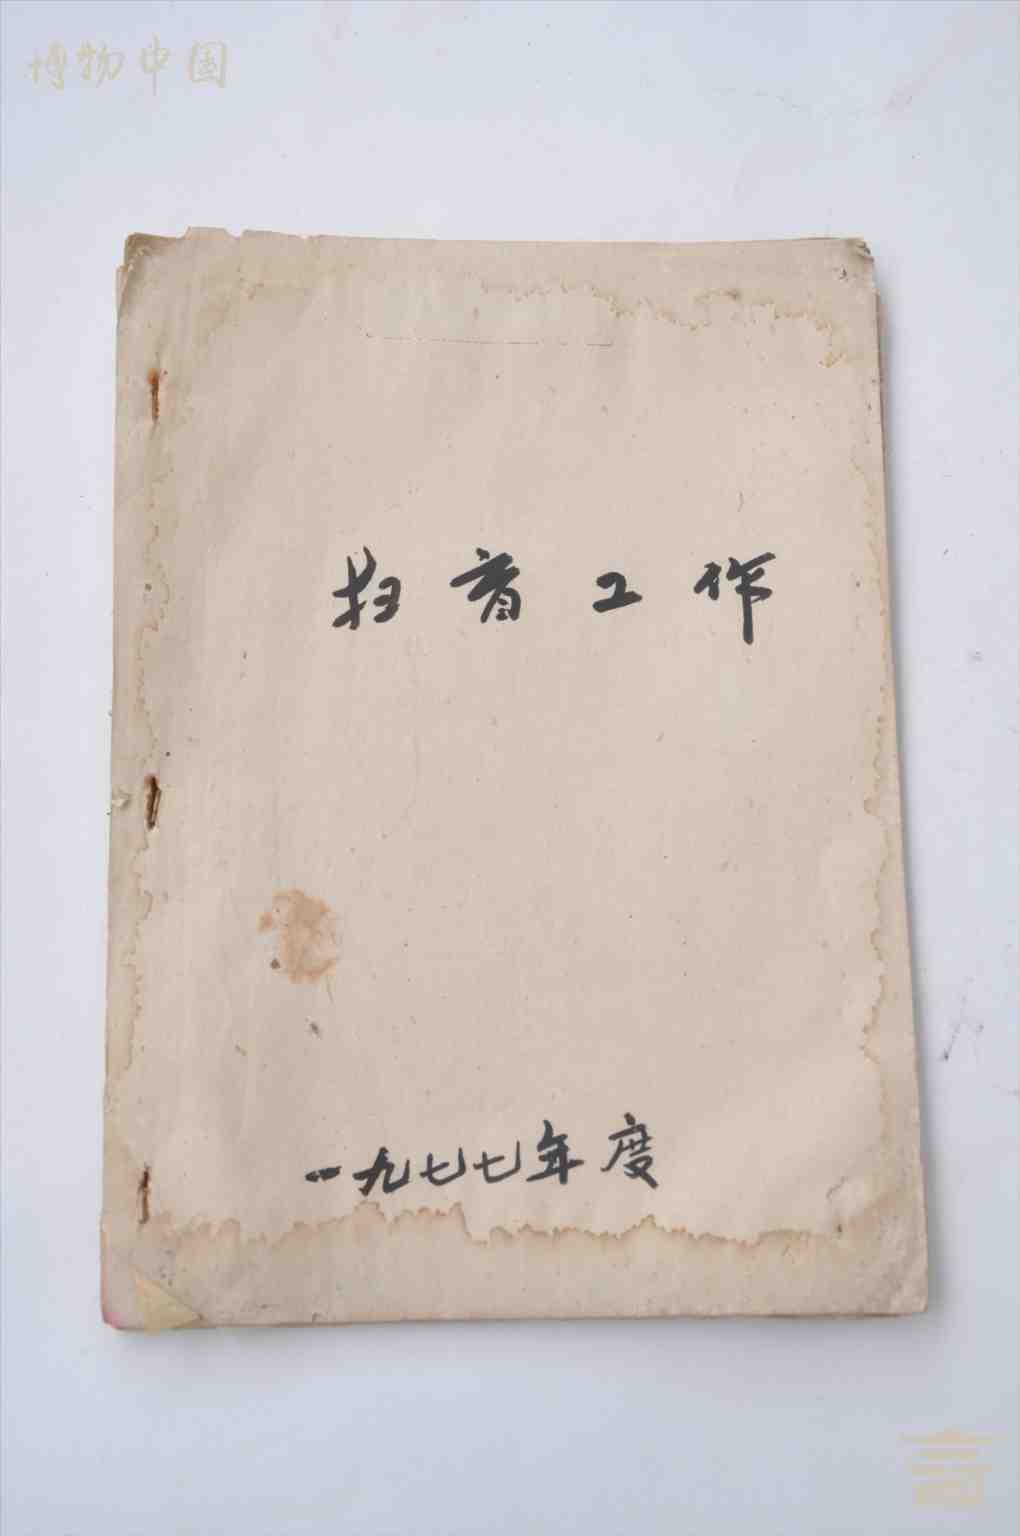 博物中国
扫盲工作
一九七七年度